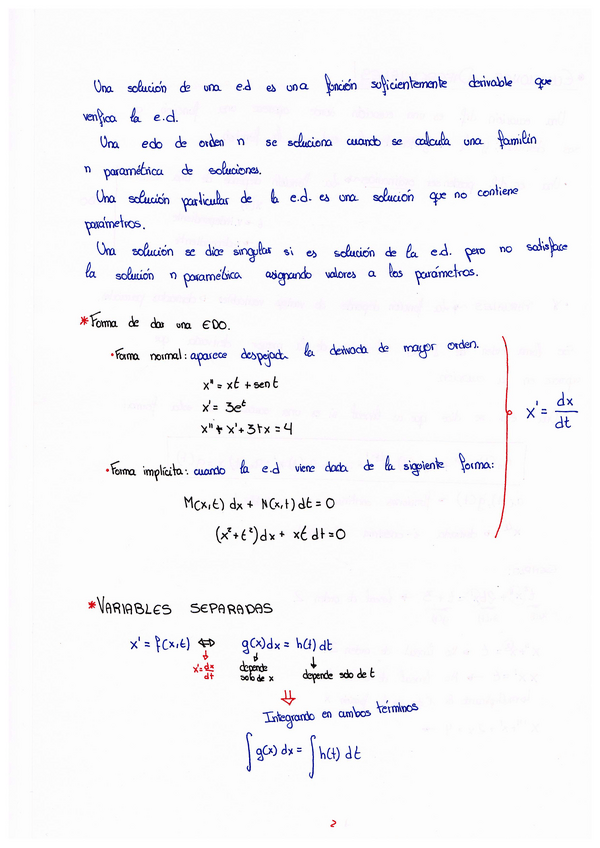 Una solución de una e.d es una función suficientemente derivable que
verifica la e.d.
Una edo de orden n se soluciona cuando se calcula una familia
n paramétrica de soluciones.
Una solución particular de la e.d. es una solución que no contiene
parámetros.
Una solución se dice singular si es solución de la e.d. pero no satisface
la solución n paramétrica asignando valores a los parámetros.
*Forma de dar una EDO.
•Forma normal: aparece despejada la derivada de mayor orden.
x'' = xt + sen t
x' = 3e^t
x'' + x' + 3tx = 4
x' = dx/dt
•Forma implícita: cuando la e.d viene dada de la siguiente forma:
M(x,t) dx + N(x,t) dt = 0
(x²+t²)dx + xt dt = 0
*VARIABLES SEPARADAS
x' = f(x,t) ⇔ g(x)dx = h(t) dt
↓ ↓ ↓
x' = dx/dt depende solo de x depende solo de t
⇓
Integrando en ambos términos
∫ g(x) dx = ∫ h(t) dt
2